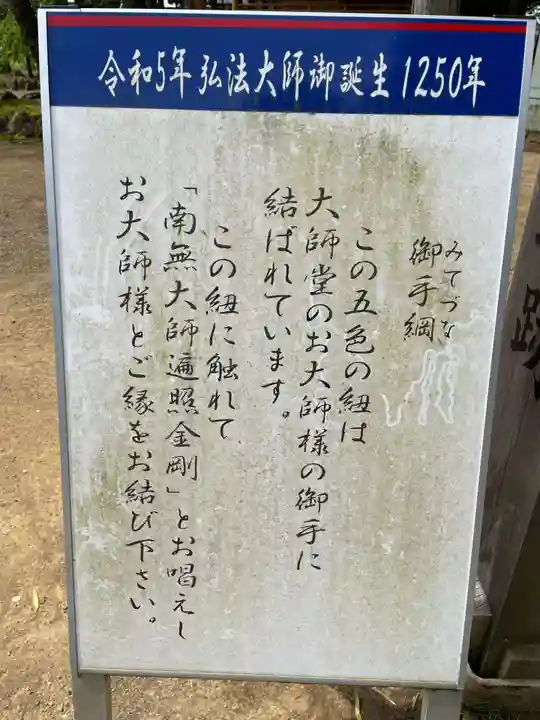 令和5年弘法大師御誕生1250年
みてづな
御手綱
この五色の紐は
大師堂のお大師様の御手に
結ばれています。
この紐に触れて
「南無大師遍照金剛」とお唱えし
お大師様とご縁をお結び下さい。